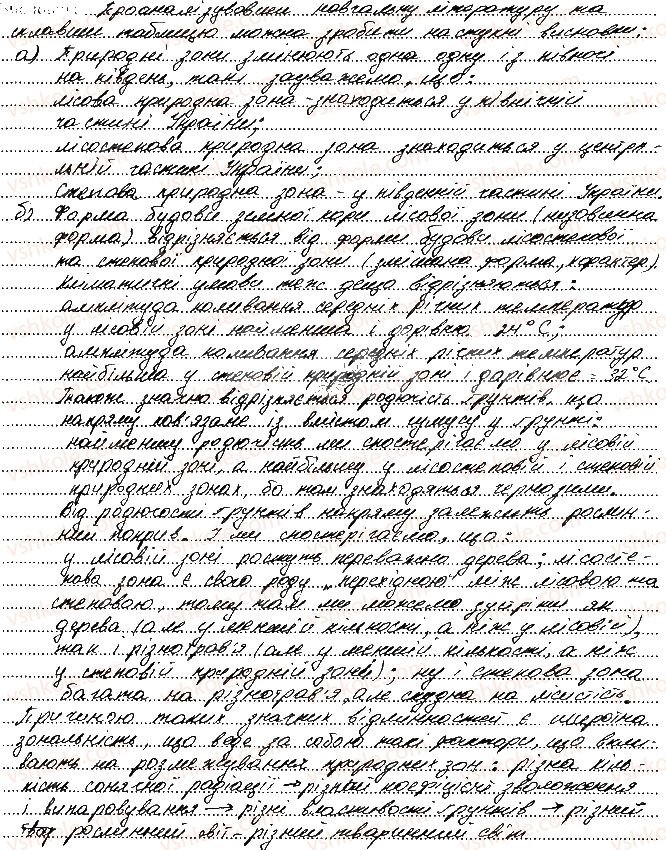 Проаналізувавши навчальну літературу та
склавши таблицю можна зробити наступні висновки:
а) Природні зони змінюють одна одну із півночі
на південь, тані зауважемо, що:
лісова природна зона - знаходиться у північній
частині України;
лісостепова природна зона знаходиться у центра-
льній частині України;
степова природна зона - у південній частині України.
б) Форма будови земної кори лісової зони (низовинна
форма) відрізняється від форми будови лісостепової
та степової природної зони (змішана форма, характер).
Кліматичні умови теж дещо відрізняються:
амплітуда коливання середніх річних температур
у лісовій зоні найменша і дорівнює 24°С;
амплітуда коливання середніх річних температур
найбільша у степовій природній зоні і дарівнює - 32°С
Також значно відрізняється родючість грунтів, що
напряму пов'язане із вмістом гумусу у грунті:
найменшу родючість ми спостерігаємо у лісовій
природній зоні, а найбільшу у лісостеповій і степовій
природних зонах, бо там знаходяться чорноземи.
Від родючості грунтів напряму залежить рослин-
ний покрив. І ми спостерігаємо, що:
у лісовій зоні ростуть переважно дерева; лісосте-
пова зона є свого роду „перехідною" між лісовою та
степовою, тому там ми можемо зустріти як
дерева (але у меншій кількості, а ніж у лісовій),
так і різнотрав'я (але у меншій кількості, а ніж
у степовій природній зоні); ну і степова зона
багата на різнотрав'я, але скудна на лісистість.
Причиною таких значних відмінностей є широтна
зональність, що веде за собою такі фактори, що впли-
вають на розмежування природних зон: різна кіль-
кість сонячної радіації → різний коефіцієнт зволоження
і випаровування → різні властивості грунтів → різний
рослинний світ - різний тваринний світ